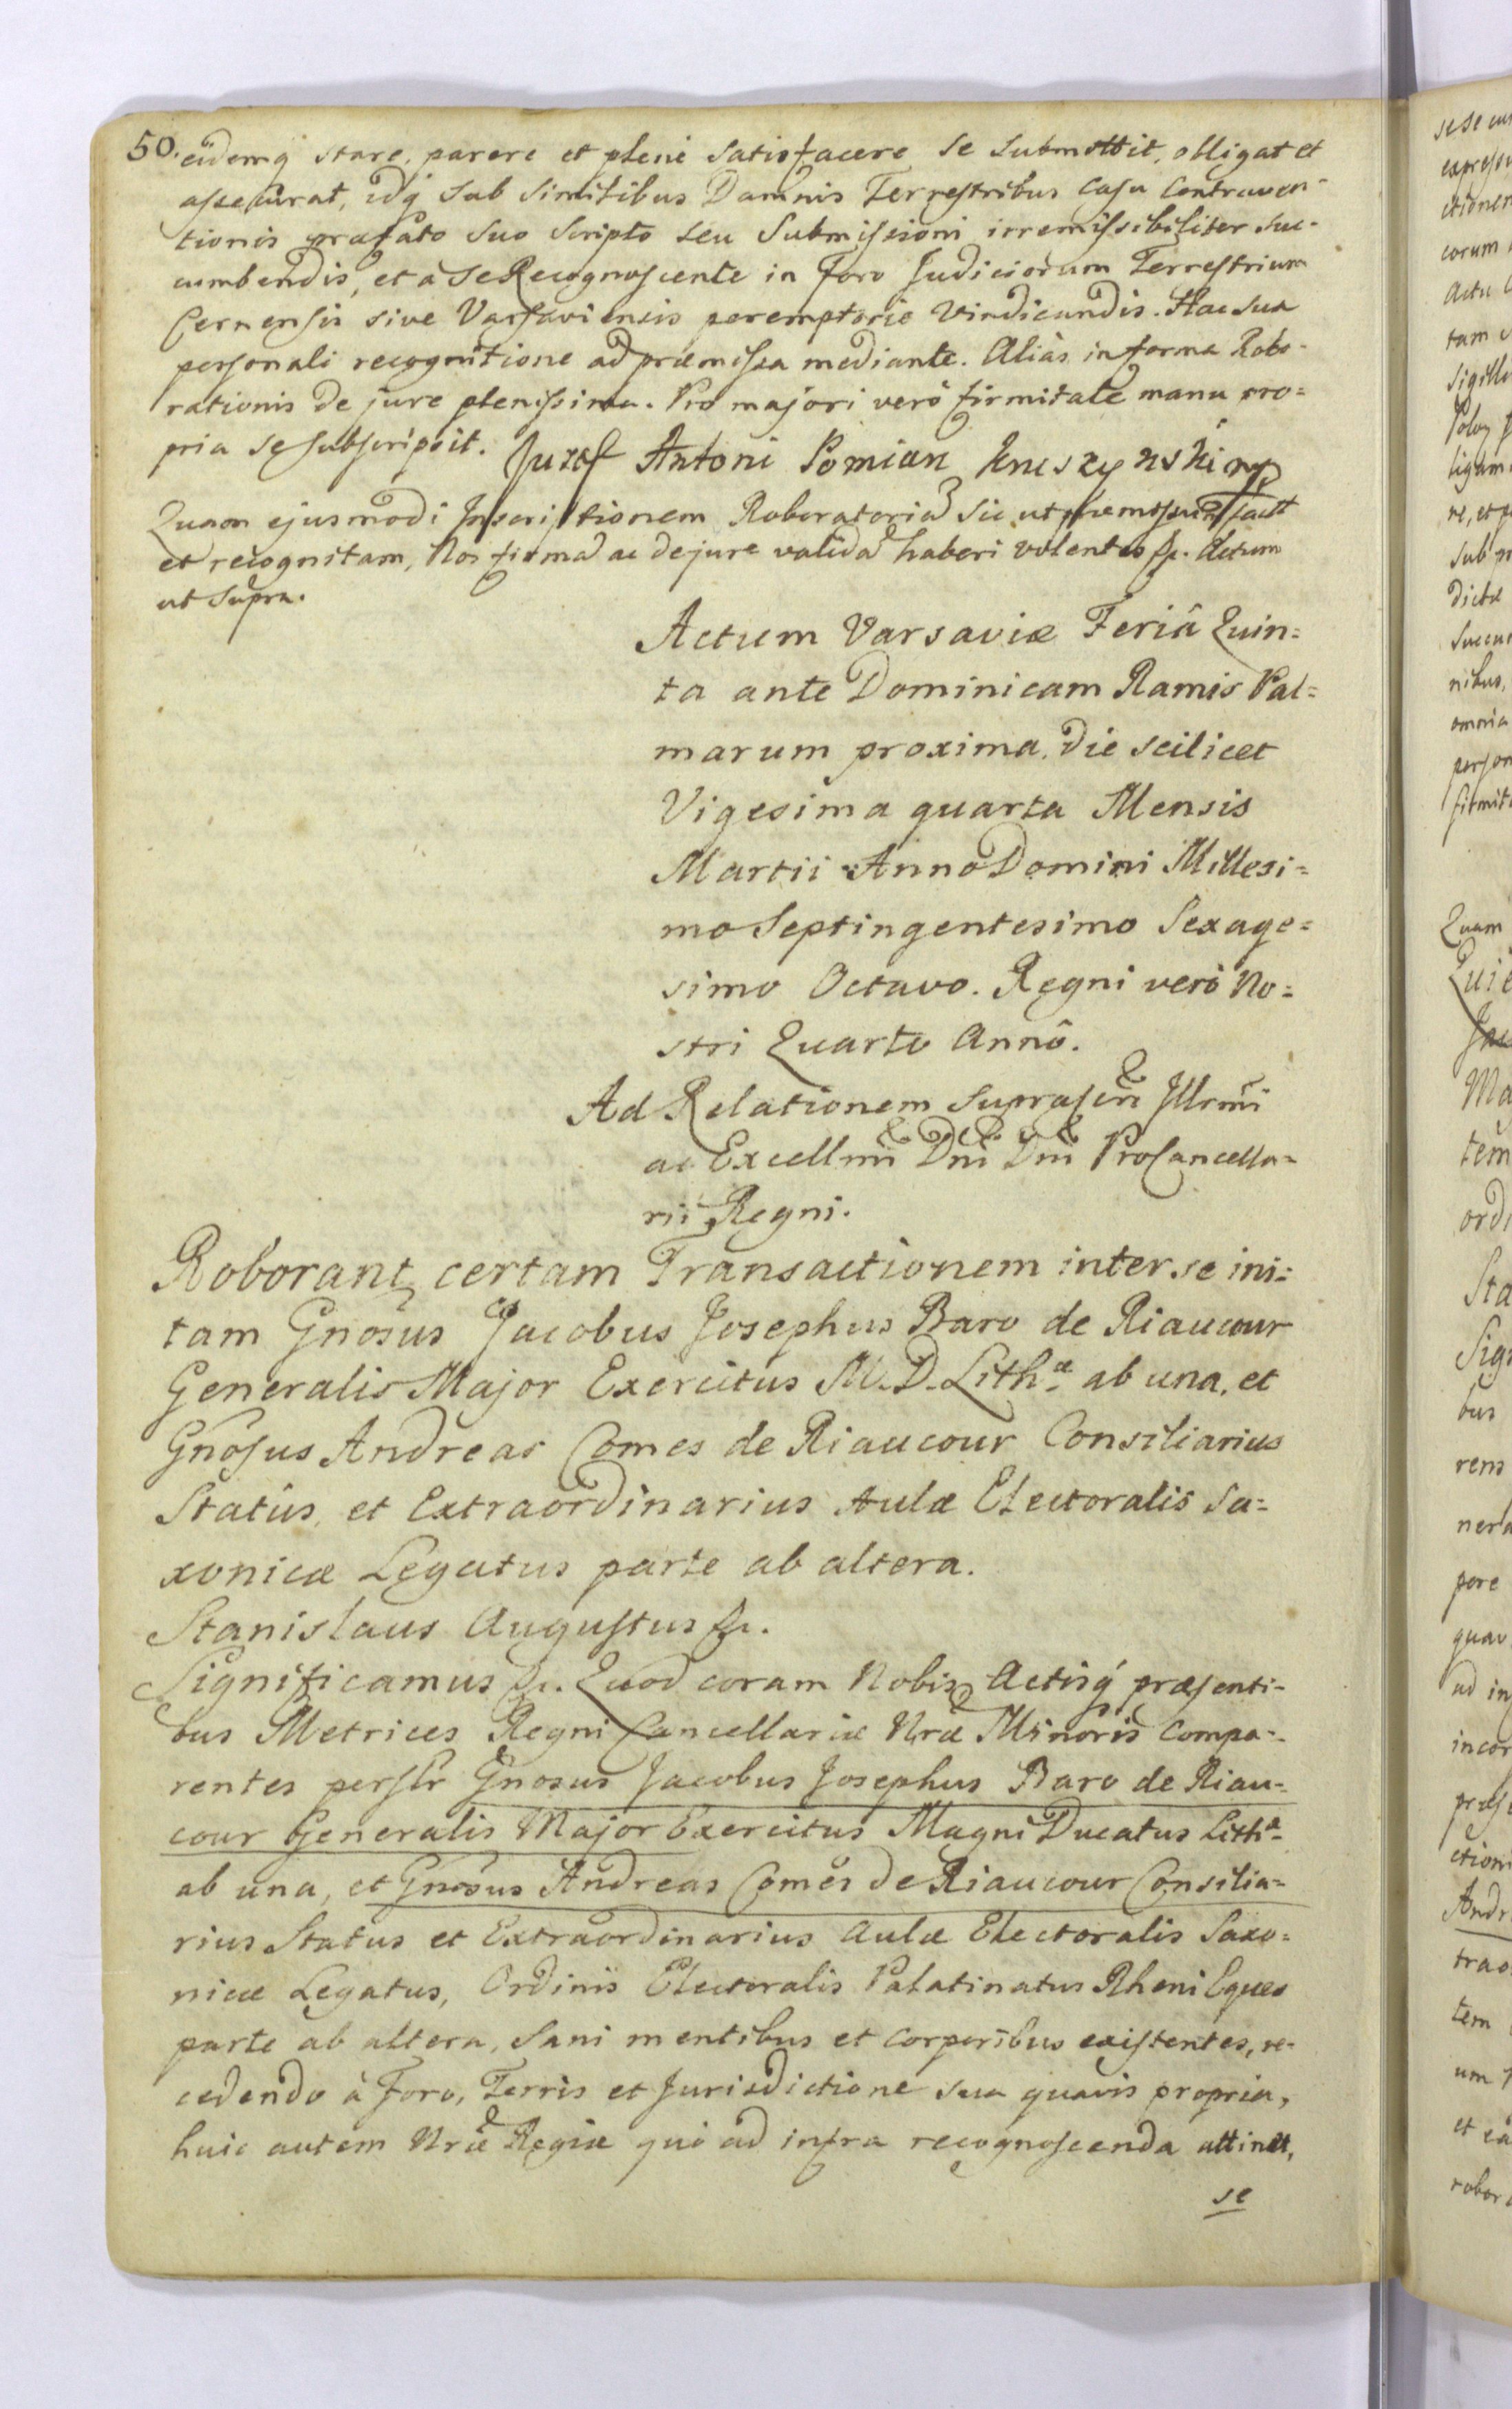 50. eidemq́ stare, parere et plenè satisfacere se submittit, obligat et
assecurat, idq́ sub similibus Damnis Terrestribus casu contraven-
tionis præfato suo scripto seu submissioni irremissibiliter suc-
cumbendis, et à se Recognoscente in Foro Judiciorum Terrestrium
Cernensis sive Varsaviensis peremptorie vindicandis. Hac sua
personali recognitione ad præmissa mediante. Aliàs in forma Robo-
rationis de jure plenissima. Pro majori verò firmitate manu pro=
pria se subscripsit. Juzef Antoni Pomian Kruszynski mp
Quam ejusmodi Inscriptionem Roboratoriã sic ut præmissum factã
et recognitam, Nos firmã ac de jure validã haberi volentes &c. Actum
ut supra.
Actum Varsaviæ Feriâ Quin=
ta ante Dominicam Ramis Pal=
marum proxima, die scilicet
Vigesima quarta Mensis
Martii Anno Domini Millesi=
mo Septingentesimo Sexage=
simo Octavo. Regni verò No=
stri Quarto Annô.
Ad Relationem suprascrĩ Illrmi
ac Excellmi Dni Dni ProCancella=
rii Regni.
Roborant certam Transactionem inter se ini=
tam Gnosus Jacobus Josephus Baro de Riaucour
Generalis Major Exercitus M. D. Lith.æ ab una, et
Gnosus Andreas Comes de Riaucour Consiliarius
Status, et Extraordinarius Aulæ Electoralis Sa=
xonicæ Legatus parte ab altera.
Stanislaus Augustus &c.
Significamus &c. Quod coram Nobis Actisq́ præsenti-
bus Metrices Regni Cancellariæ Nræ Minoris compa-
rentes persłr Gnosus Jacobus Josephus Baro de Riau-
cour Generalis Major Exercitus Magni Ducatus Lith.æ
ab una, et Gnosus Andreas Comes de Riaucour Consilia=
rius Status et Extraordinarius Aulæ Electoralis Saxo=
nicæ Legatus, Ordinis Electoralis Palatinatus Rheni Eques
parte ab altera, sani mentibus et corporibus existentes, re-
cedendo à Foro, Terris et Jurisdictione sua quavis propria,
huic autem Nræ Regiæ quò ad infra recognoscenda attinet,
se